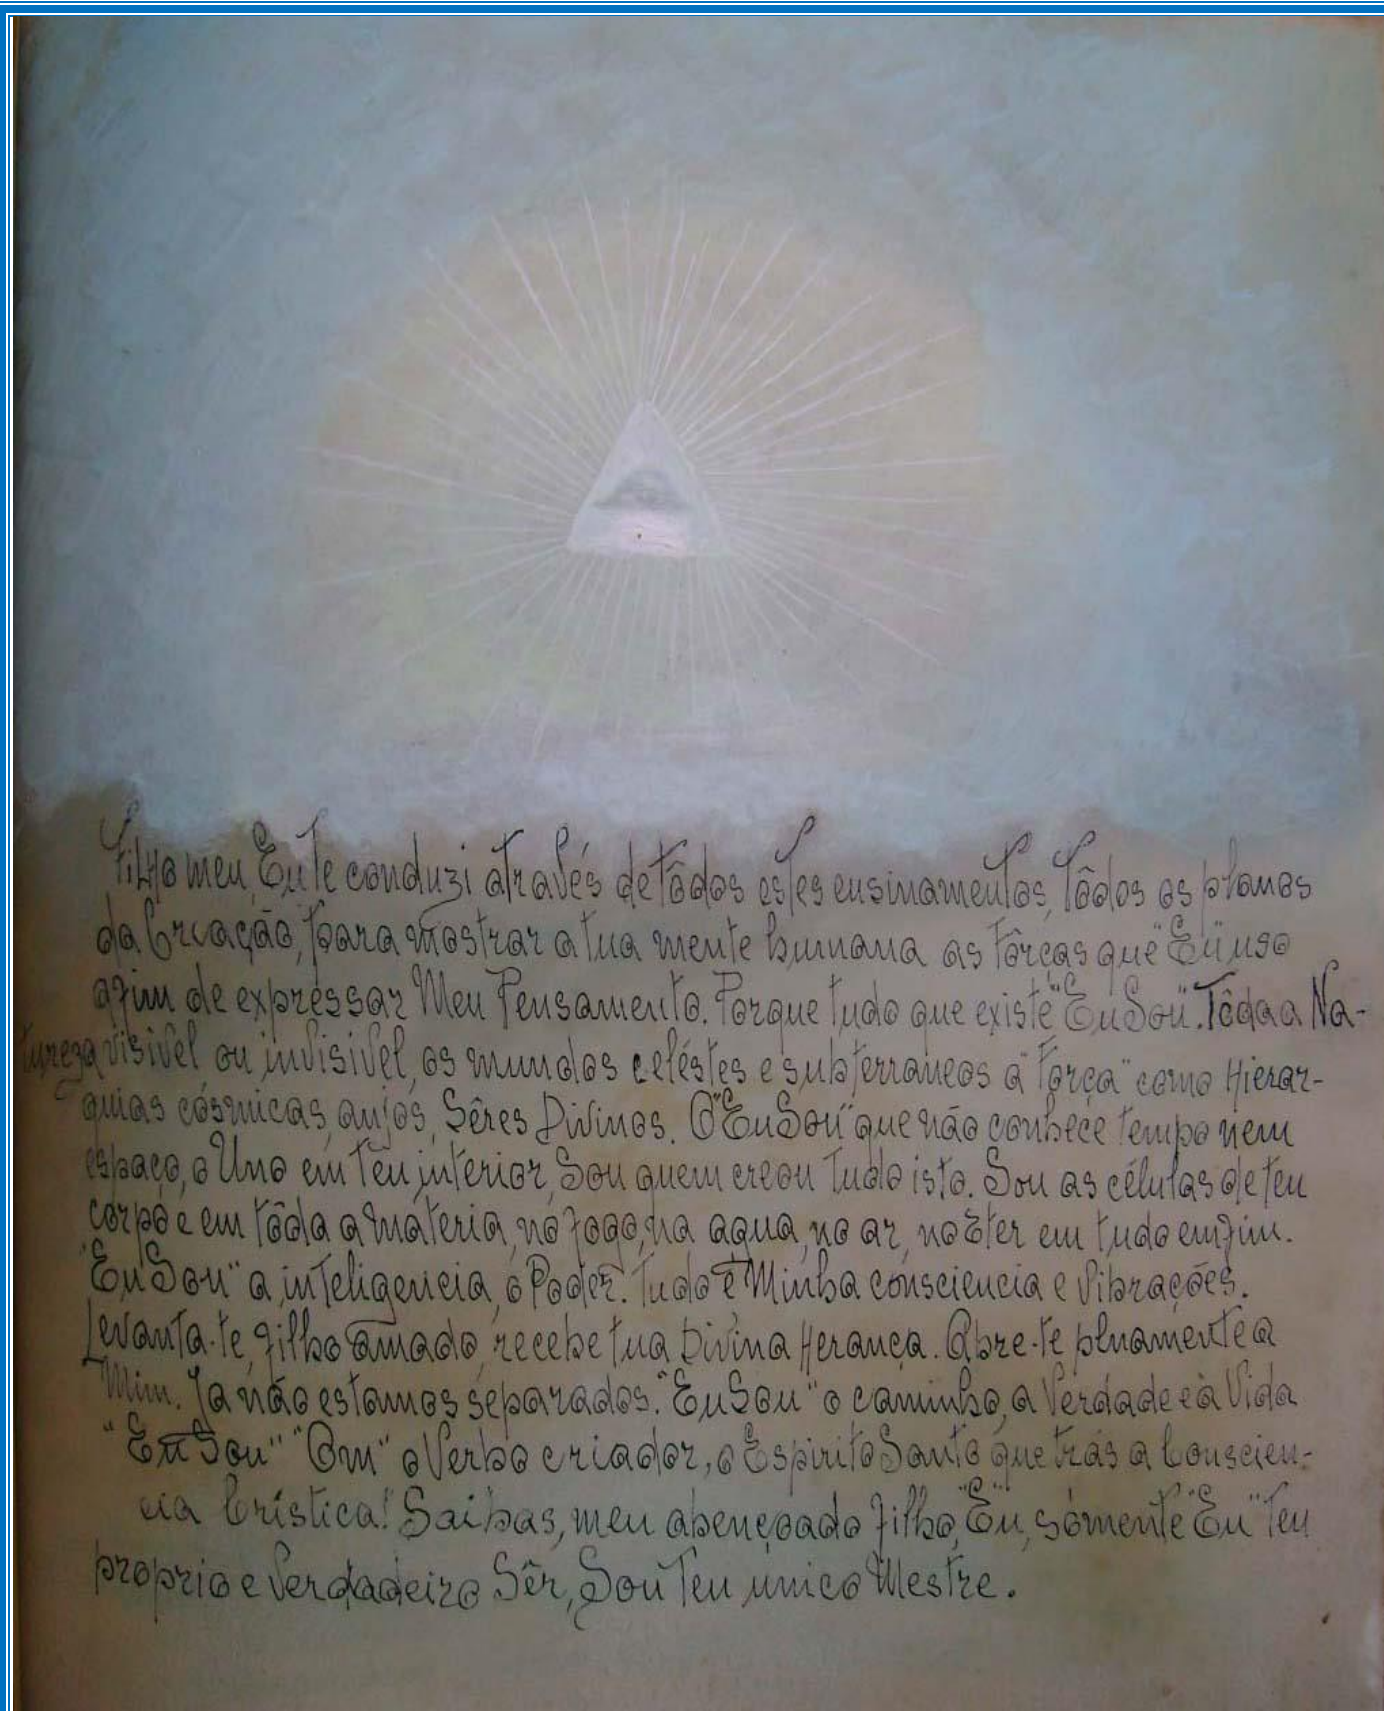 Filho meu, Eu te conduzi através de tôdos estes ensinamentos, tôdos os planos
da Creação, para mostrar a tua mente humana as fôrças que "Eu" uso
afim de expressar Meu Pensamento. Porque tudo que existe "Eu Sou". Tôda a Na-
tureza visivel ou invisivel, os mundos celéstes e subterraneos a "força" como Hierar-
quias cósmicas, anjos, Sêres Divinos. O "Eu Sou" que não conhece tempo nem
espaço, o Uno em teu interior, Sou quem creou tudo isto. Sou as células de teu
corpo e em tôda a materia, no fogo, na agua, no ar, no Eter em tudo emfim.
"Eu Sou" a inteligencia, o Poder. Tudo é Minha consciencia e Vibrações.
Levanta-te, filho amado, recebe tua Divina Herança. Abre-te plnamente a
Mim. Ja não estamos separados. "Eu Sou" o caminho, a Verdade e a Vida
"Eu Sou" "Om" o Verbo criador, o Espirito Santo que trás a Conscien-
cia Crística! Saibas, meu abençoado filho, "Eu", sómente "Eu" teu
proprio e Verdadeiro Sêr, Sou teu unico Mestre.